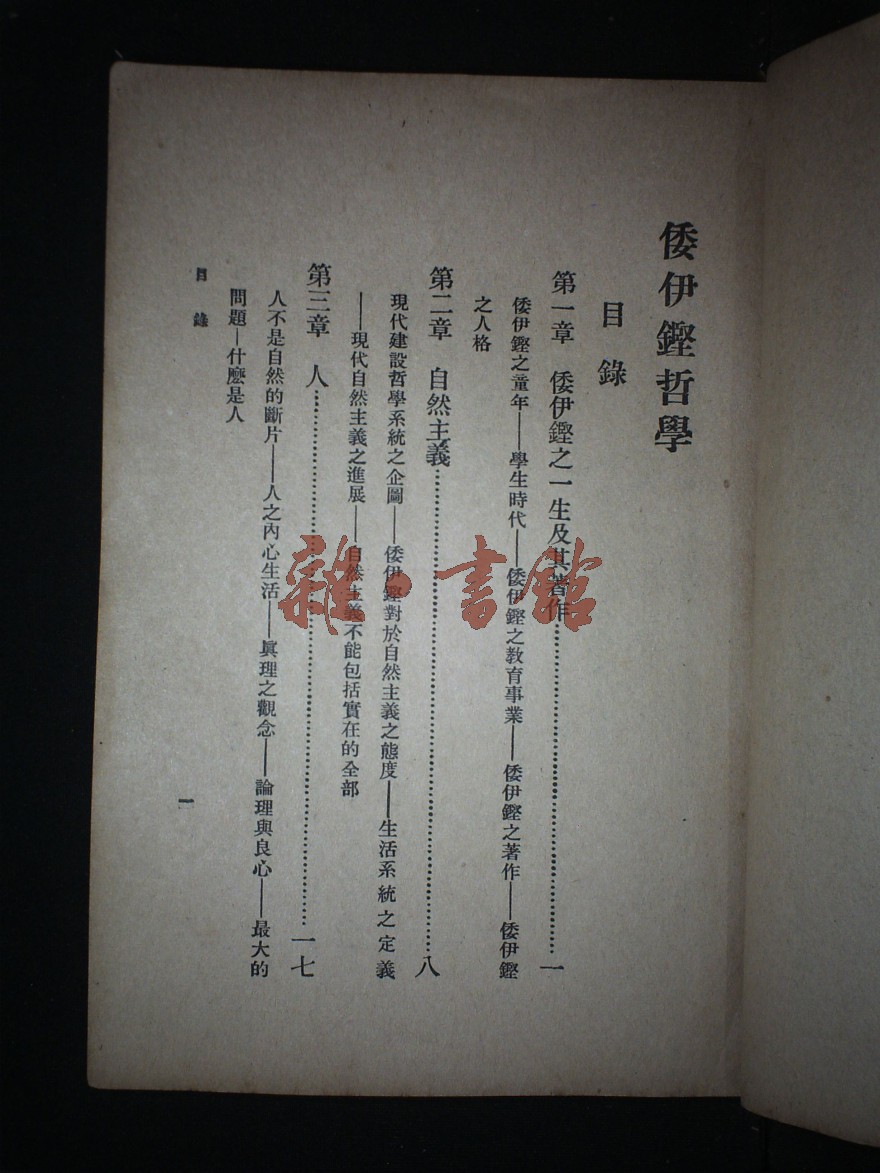 倭伊鏗哲學
目錄
第一章 倭伊鏗之一生及其著作……一
倭伊鏗之童年——學生時代——倭伊鏗之教育事業——倭伊鏗之著作——倭伊鏗
之人格
第二章 自然主義……八
現代建設哲學系統之企圖——倭伊鏗對於自然主義之態度——生活系統之定義
——現代自然主義之進展——自然主義不能包括實在的全部
第三章 人……一七
人不是自然的斷片——人之內心生活——眞理之觀念——論理與良心——最大的
問題—什麽是人
目錄
一
雜·書館